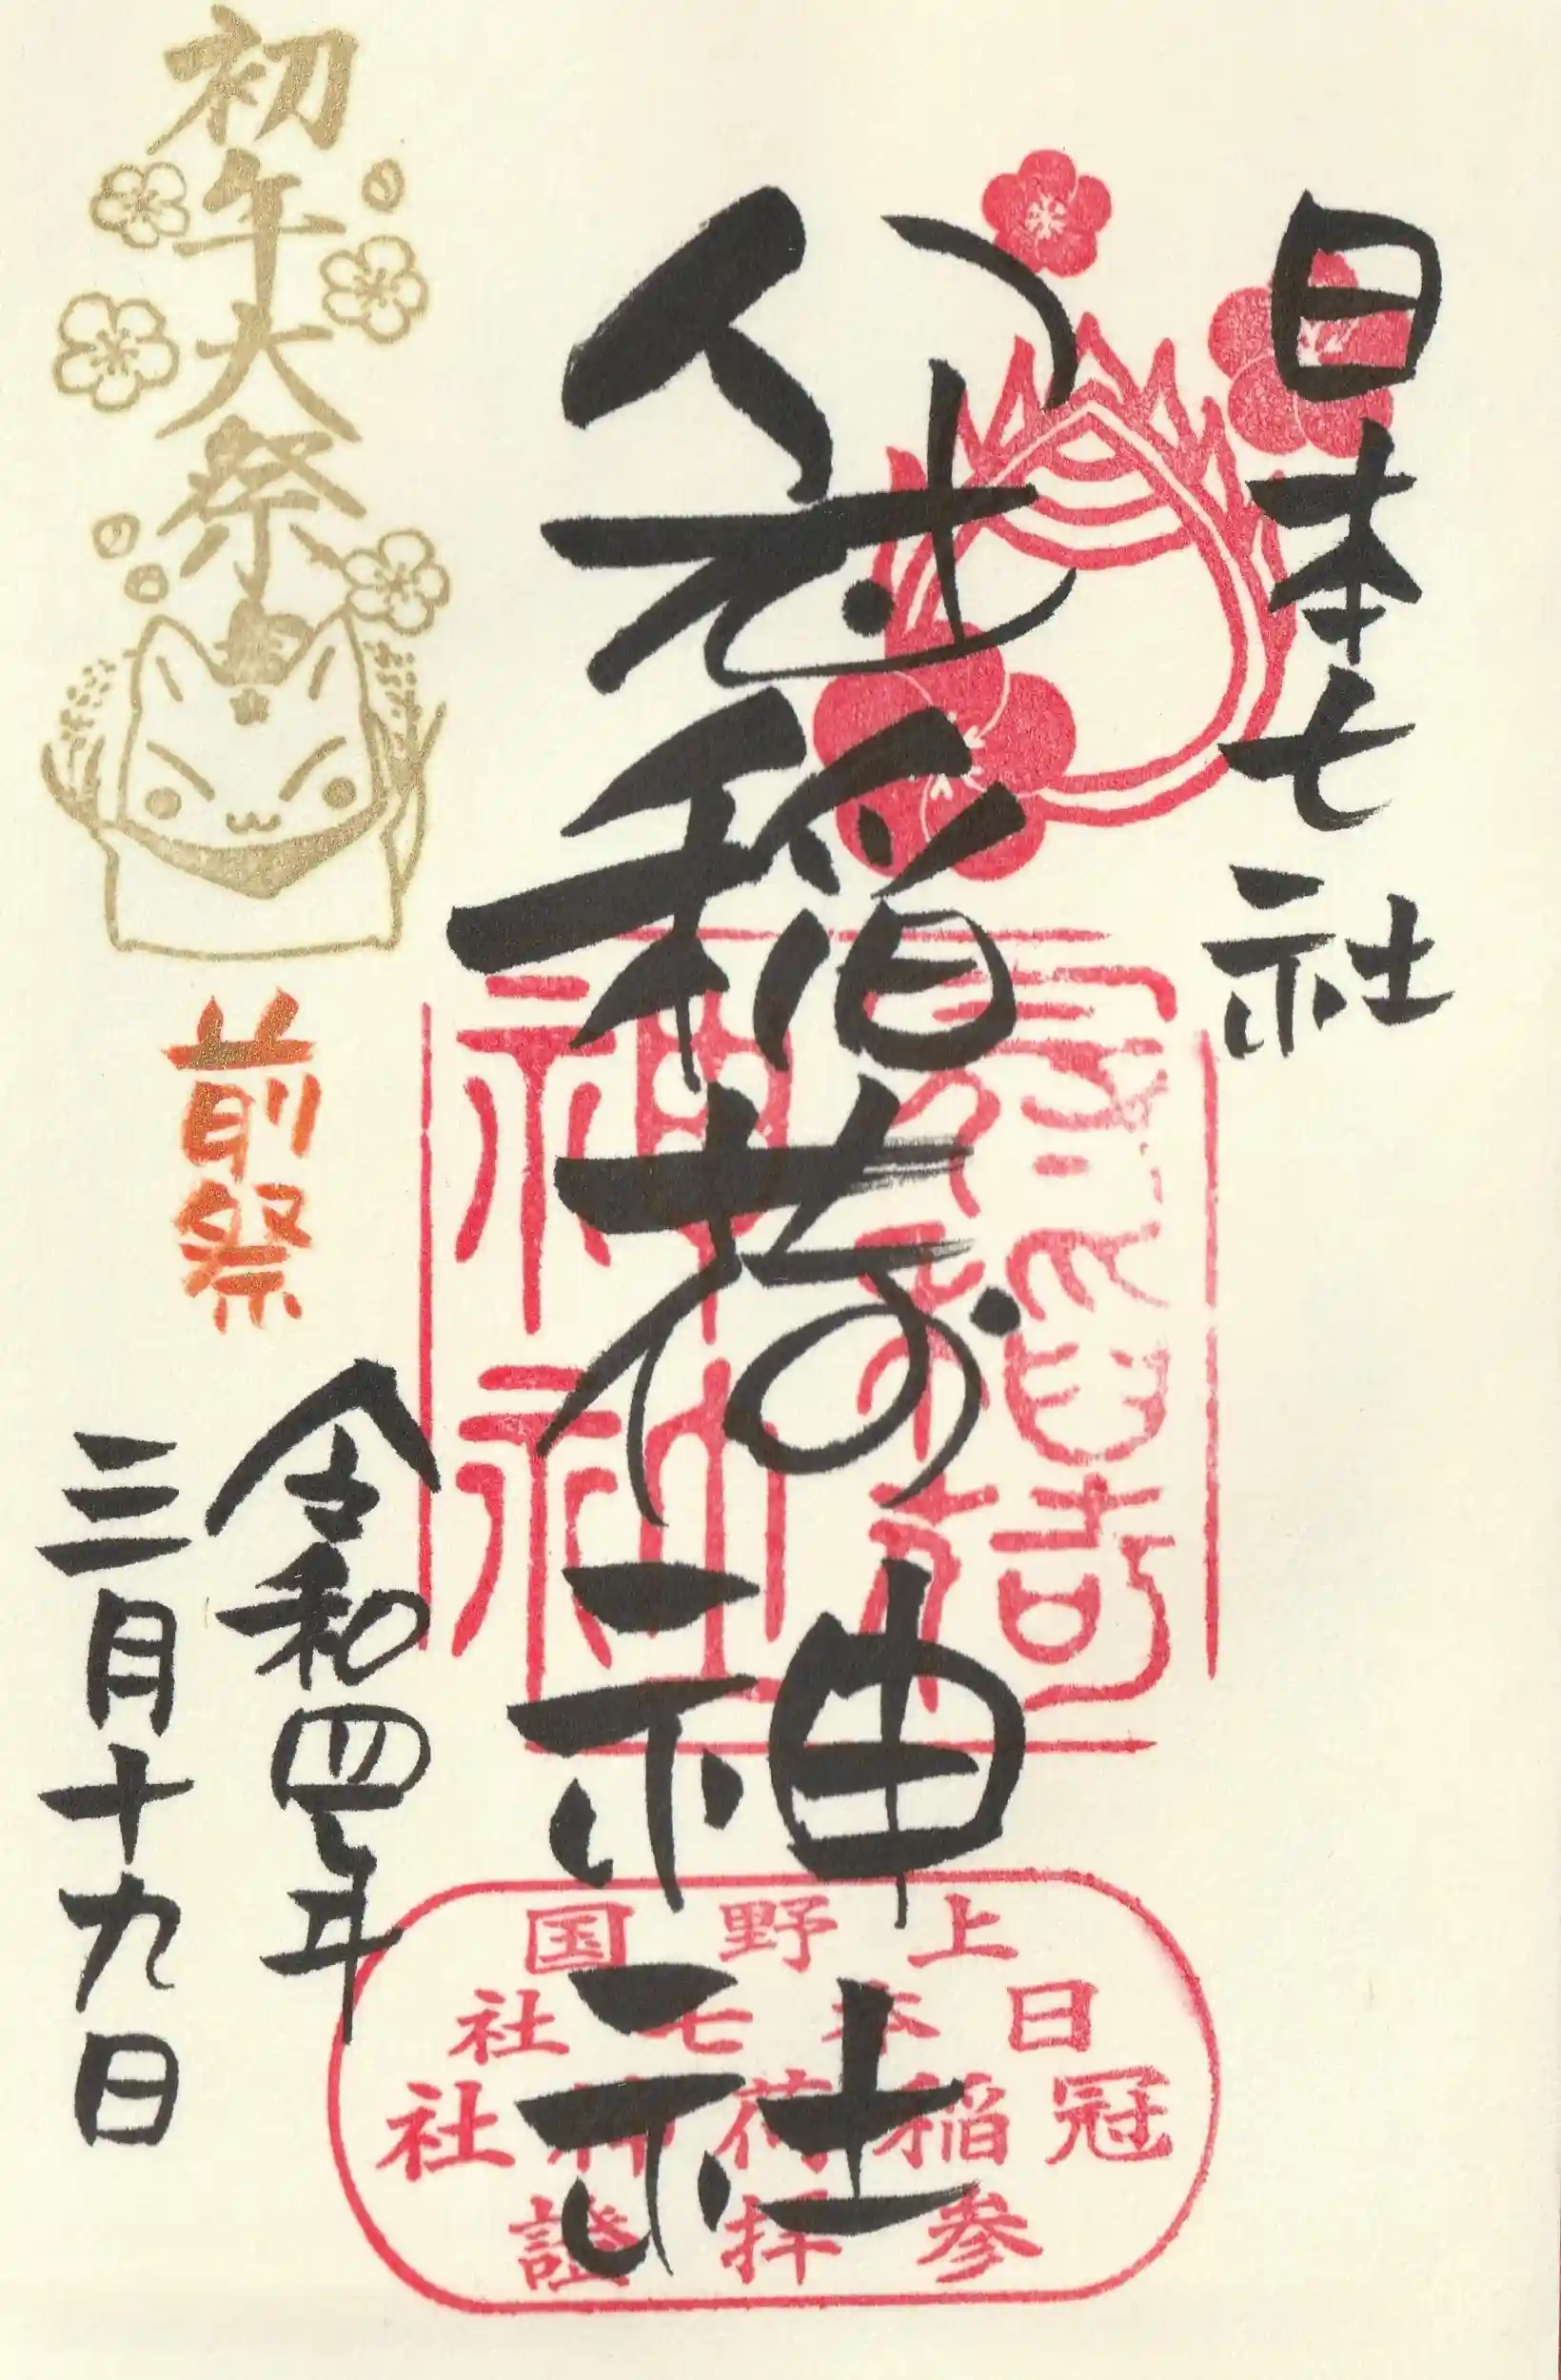 日本七社
冠稲荷神社
初午大祭
前祭
令和四年
三月十九日
上野国
日本七社
冠稲荷神社
参拝證